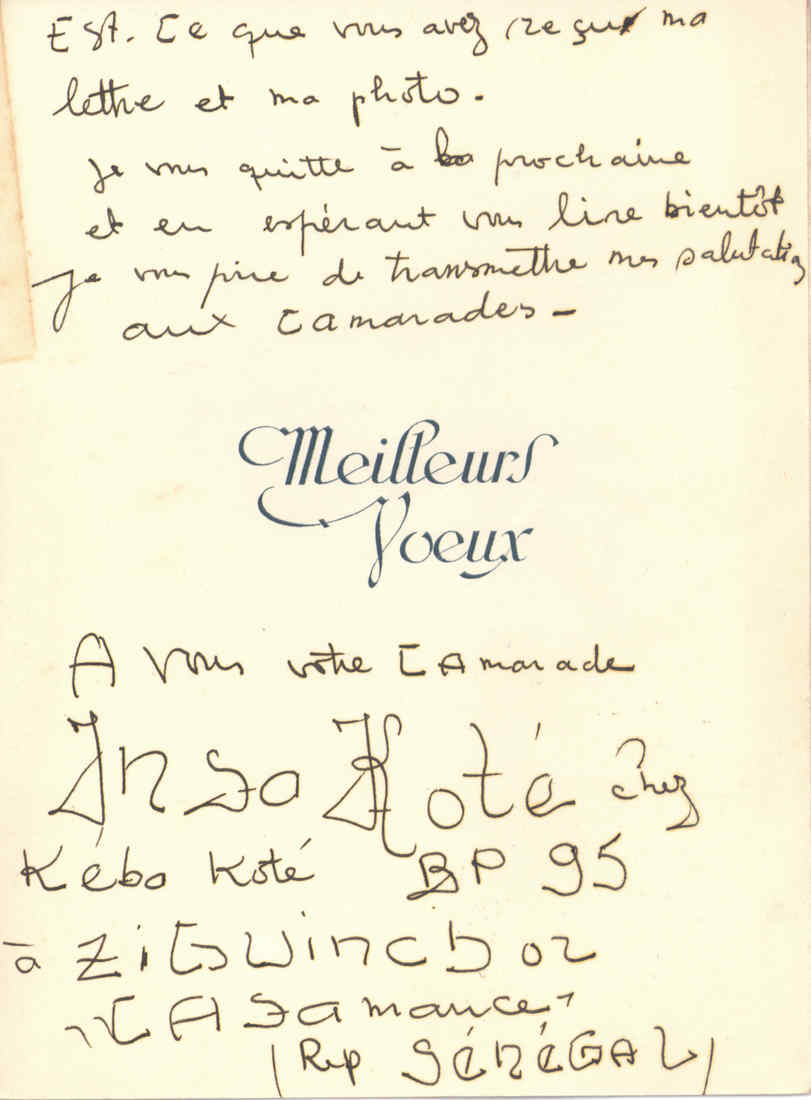 Est. Ce que vous avez reçu ma
lettre et ma photo.
Je vous quitte à la prochaine
et en espérant vous lire bientôt
Je vous prie de transmettre mes salutations
aux Camarades -
Meilleurs
Voeux
A vous votre CAmarade
Insa Koté chez
Kéba Koté BP 95
à Ziguinchor
"CASamance"
(Rep SÉNÉGAL)